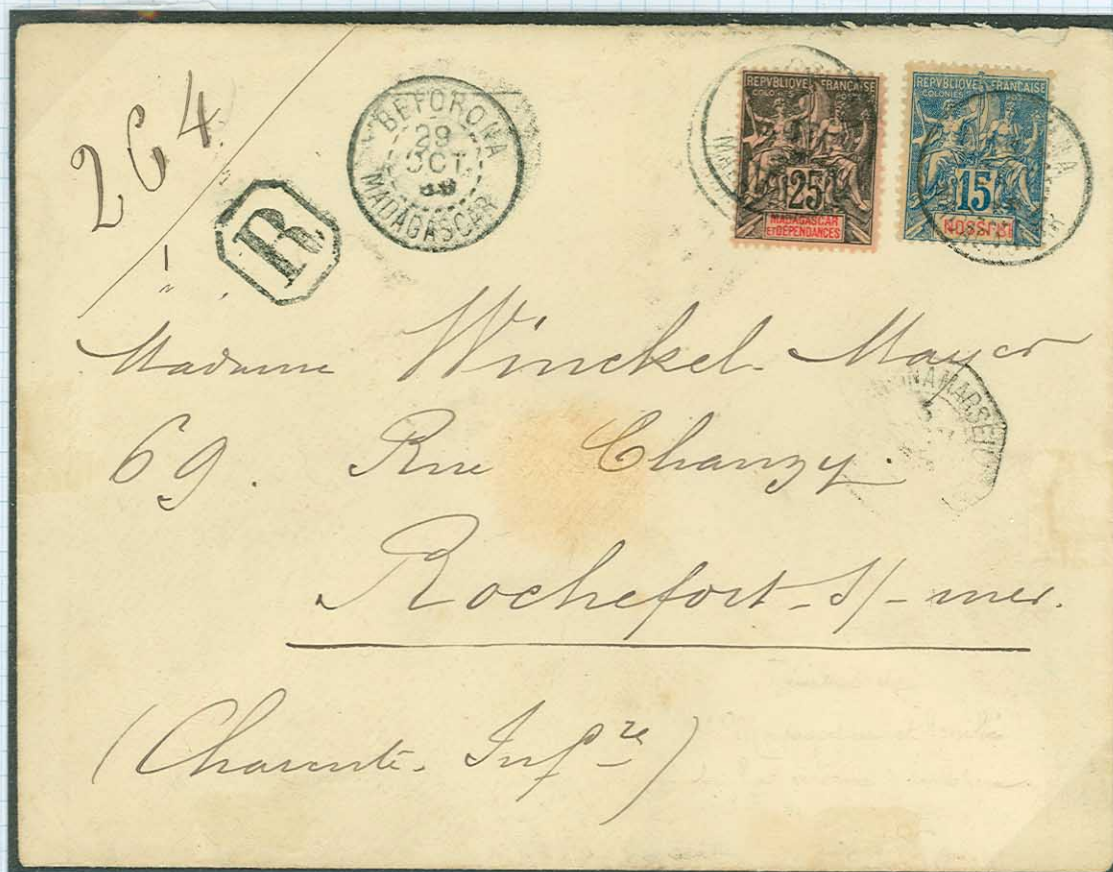 264
R
BEFORONA
29
OCT.
MADAGASCAR
REPVBLIQVE FRANÇAISE
COLONIES
25
MADAGASCAR
ET DÉPENDANCES
REPVBLIQVE FRANÇAISE
COLONIES
15
NOSSI-BÉ
Madame Winckel-Mayer
69. Rue Chanzy.
MARSEILLE
Rochefort-s/-mer.
(Charente-Infre)